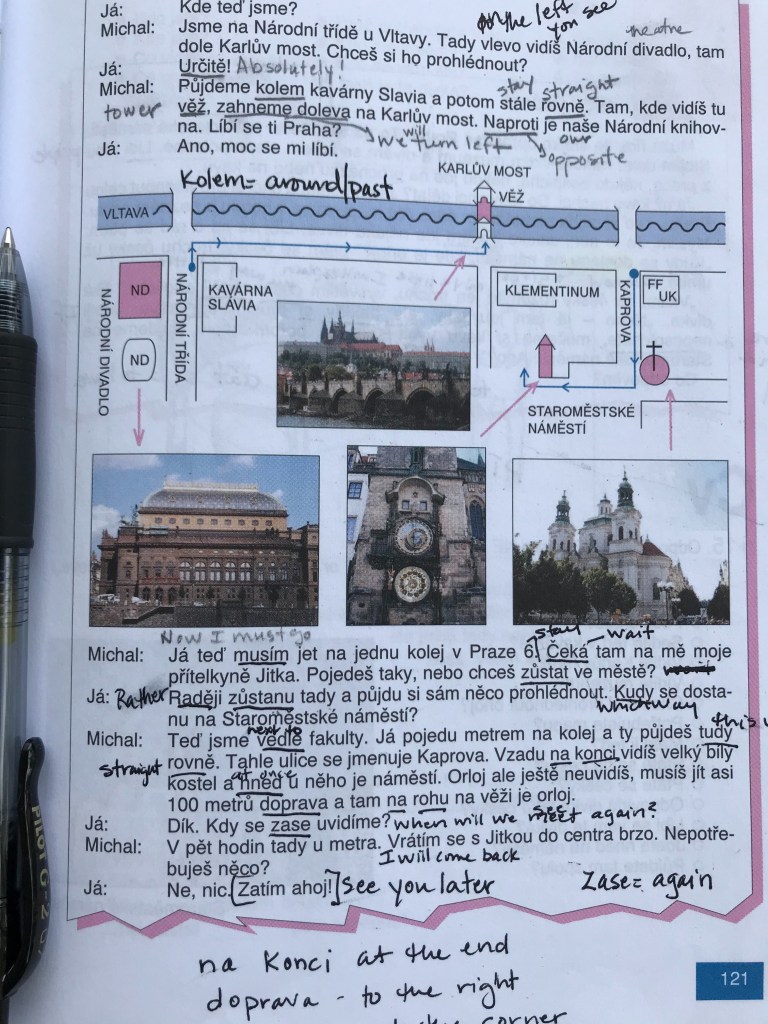 Já: Kde teď jsme?
on the left you see
Michal: Jsme na Národní třídě u Vltavy. Tady vlevo vidíš Národní divadlo, tam
theatre
dole Karlův most. Chceš si ho prohlédnout?
Já: Určitě! Absolutely!
Michal: Půjdeme kolem kavárny Slavia a potom stále rovně. Tam, kde vidíš tu
stay straight
tower
věž, zahneme doleva na Karlův most. Naproti je naše Národní knihov-
na. Líbí se ti Praha? we will turn left our
opposite
Já: Ano, moc se mi líbí.
Kolem = around/past
KARLŮV MOST
VĚŽ
VLTAVA
NÁRODNÍ DIVADLO
ND
ND
NÁRODNÍ TŘÍDA
KAVÁRNA
SLÁVIA
KLEMENTINUM
KAPROVA
FF
UK
STAROMĚSTSKÉ
NÁMĚSTÍ
Now I must go
stay wait
Michal: Já teď musím jet na jednu kolej v Praze 6. Čeká tam na mě moje
přítelkyně Jitka. Pojedeš taky, nebo chceš zůstat ve městě?
Já: Rather Raději zůstanu tady a půjdu si sám něco prohlédnout. Kudy se dosta-
nu na Staroměstské náměstí? which way
next to this
Michal: Teď jsme vedle fakulty. Já pojedu metrem na kolej a ty půjdeš tudy
straight rovně. Tahle ulice se jmenuje Kaprova. Vzadu na konci vidíš velký bílý
at once
kostel a hned u něho je náměstí. Orloj ale ještě neuvidíš, musíš jít asi
100 metrů doprava a tam na rohu na věži je orloj.
Já: Dík. Kdy se zase uvidíme? when will we meet see again?
Michal: V pět hodin tady u metra. Vrátím se s Jitkou do centra brzo. Nepotře-
buješ něco? I will come back
Já: Ne, nic. [Zatím ahoj!] See you later
Zase = again
na konci at the end
doprava - to the right
corner
121
PILOT G-2